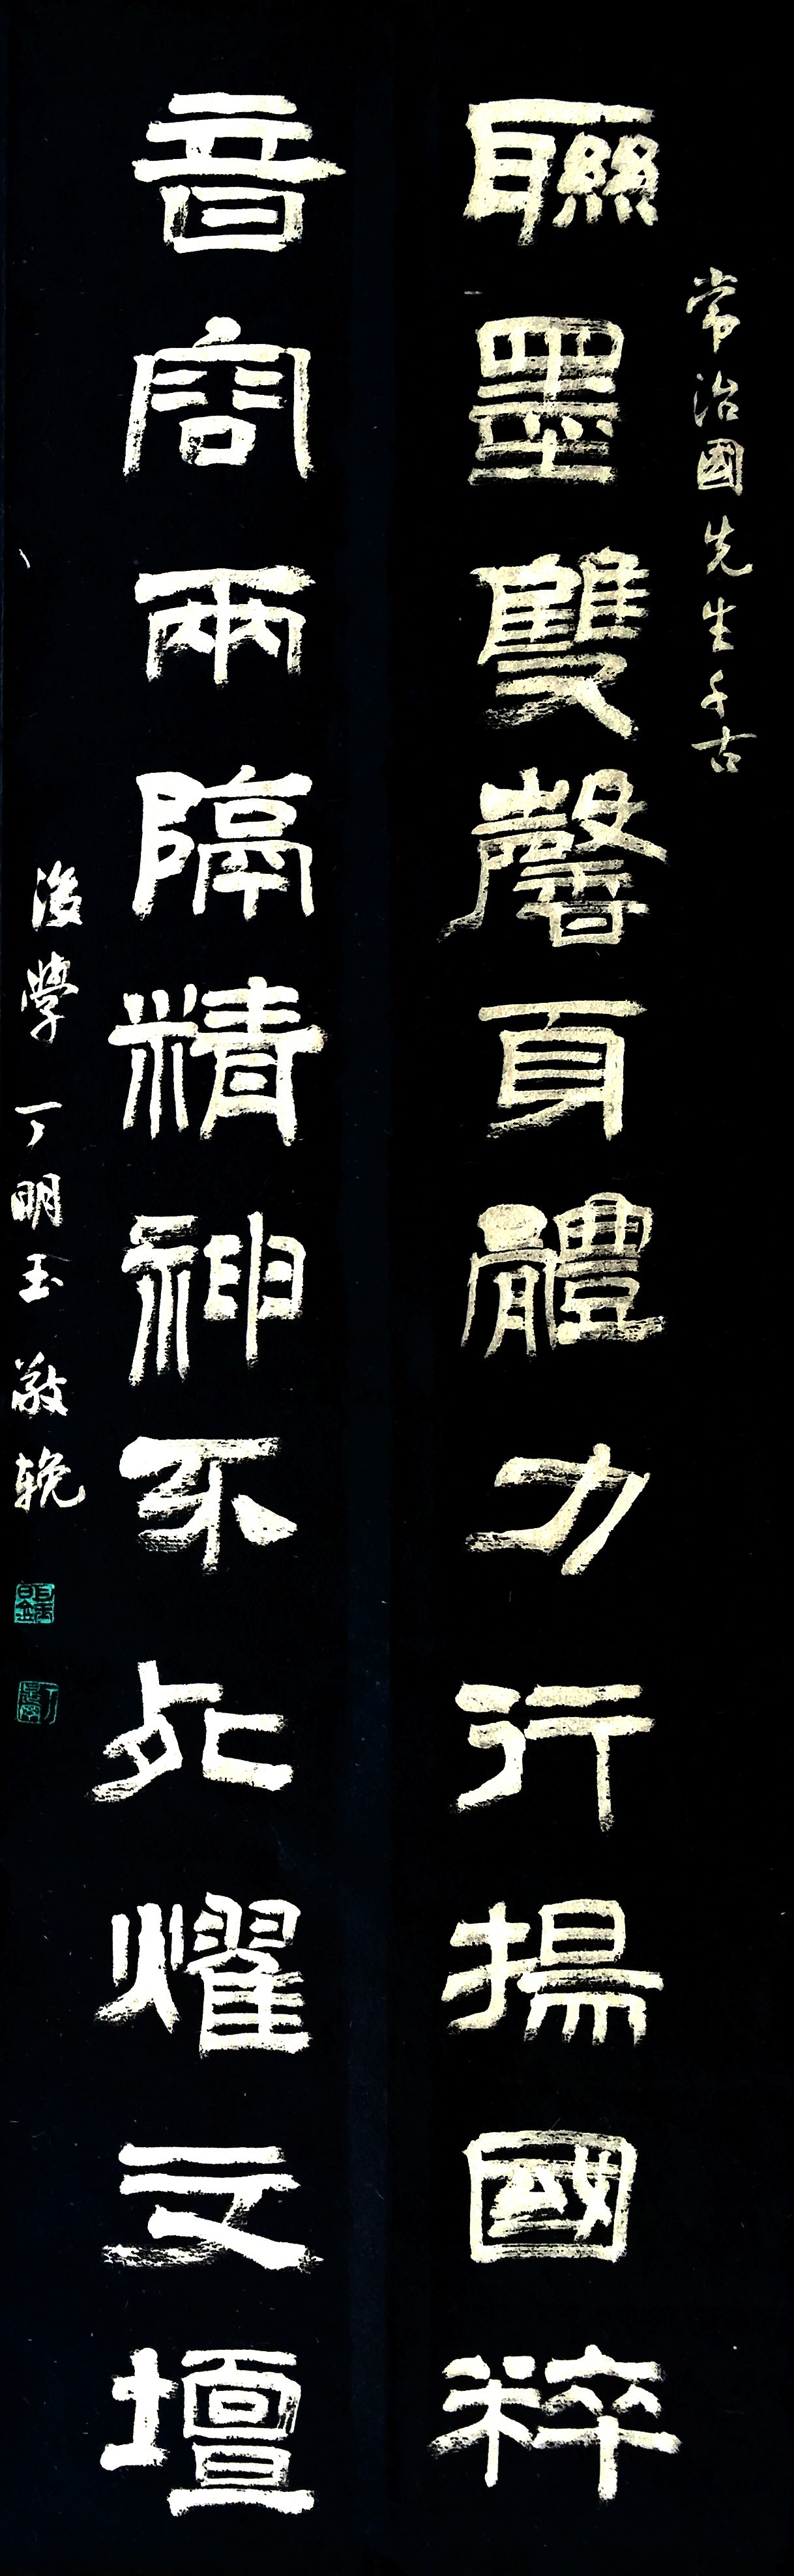 常治國先生千古
聯墨雙馨身體力行揚國粹
音容兩隔精神不死耀文壇
後學丁明玉敬輓